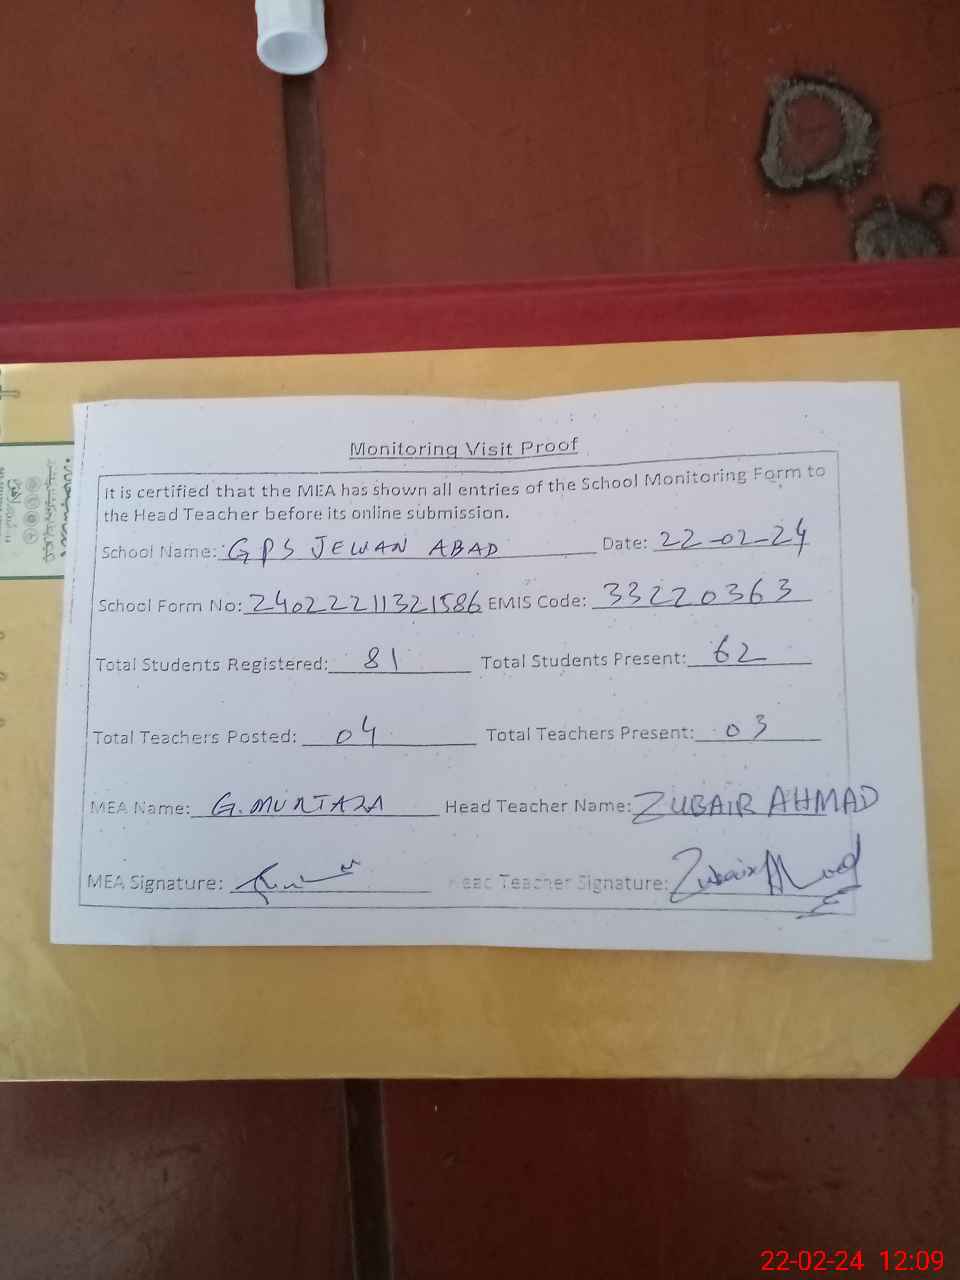 Monitoring Visit Proof
It is certified that the MEA has shown all entries of the School Monitoring Form to
the Head Teacher before its online submission.
School Name: GPS JEWAN ABAD Date: 22-02-24
School Form No: 24022211321586 EMIS Code: 33220363
Total Students Registered: 81 Total Students Present: 62
Total Teachers Posted: 04 Total Teachers Present: 03
MEA Name: G. MURTAZA Head Teacher Name: ZUBAIR AHMAD
MEA Signature: Head Teacher Signature: Zubair Ahmad
22-02-24 12:09